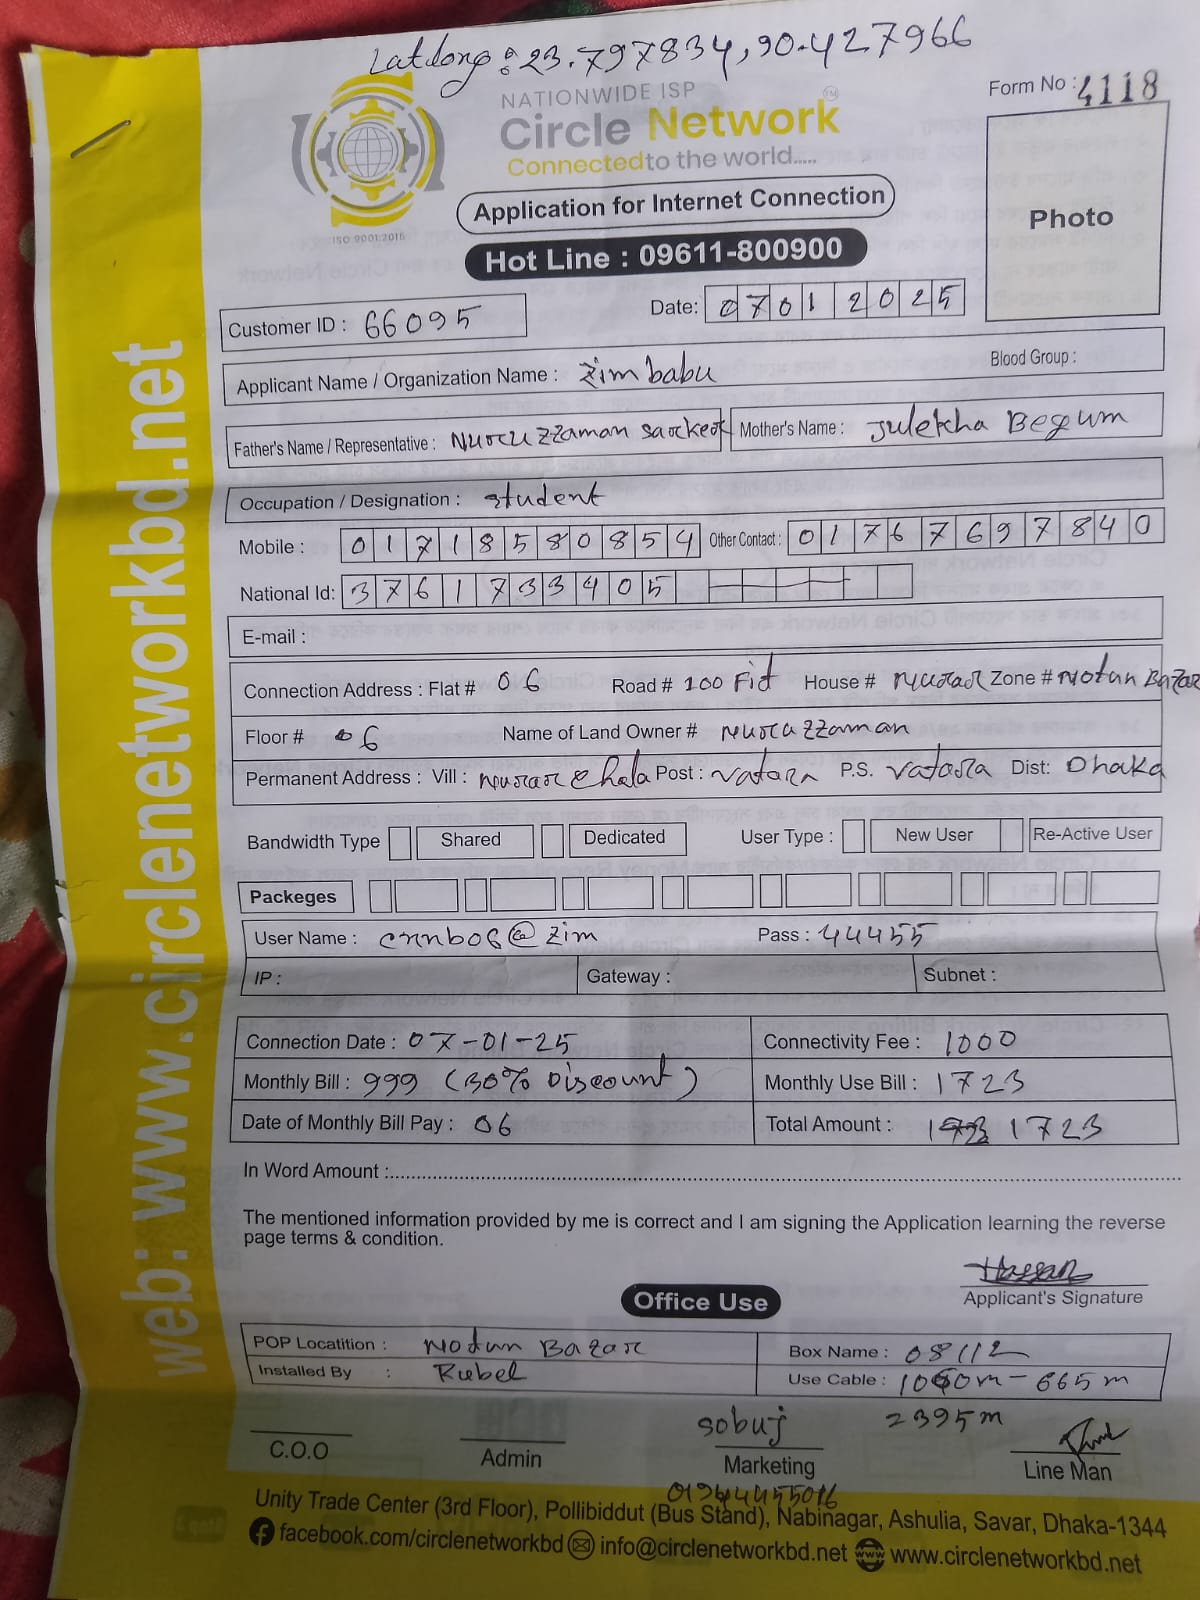 Latlong : 23.797834, 90.427966
NATIONWIDE ISP
Circle Network
TM
Connected to the world.....
ISO 9001:2015
Form No : 4118
Photo
Application for Internet Connection
Hot Line : 09611-800900
Customer ID : 66095
Date: 07012025
Applicant Name / Organization Name : Zim babu
Blood Group :
Father's Name / Representative : Nuruzzaman Sarker
Mother's Name : Julekha Begum
Occupation / Designation : Student
Mobile : 01718580854 Other Contact : 01767697840
National Id: 3761733405
E-mail :
Connection Address : Flat # 06 Road # 100 Fit House # Zone # Notun Bazar
Floor # 06 Name of Land Owner # Nurazzaman
Permanent Address : Vill : Post : Vatara P.S. Vatara Dist: Dhaka
Bandwidth Type Shared Dedicated User Type : New User Re-Active User
Packeges
User Name : cnnb06@zim Pass : 44455
IP : Gateway : Subnet :
Connection Date : 07-01-25 Connectivity Fee : 1000
Monthly Bill : 999 (30% Discount) Monthly Use Bill : 1723
Date of Monthly Bill Pay : 06 Total Amount : 1723
In Word Amount :
The mentioned information provided by me is correct and I am signing the Application learning the reverse
page terms & condition.
Hassan
Applicant's Signature
Office Use
POP Locatition : Notun Bazar Box Name : 08112
Installed By : Rubel Use Cable : 1060m - 665m
2395m
sobuj
C.O.O Admin Marketing Line Man
Unity Trade Center (3rd Floor), Pollibiddut (Bus Stand), Nabinagar, Ashulia, Savar, Dhaka-1344
facebook.com/circlenetworkbd info@circlenetworkbd.net www.circlenetworkbd.net
web: www.circlenetworkbd.net